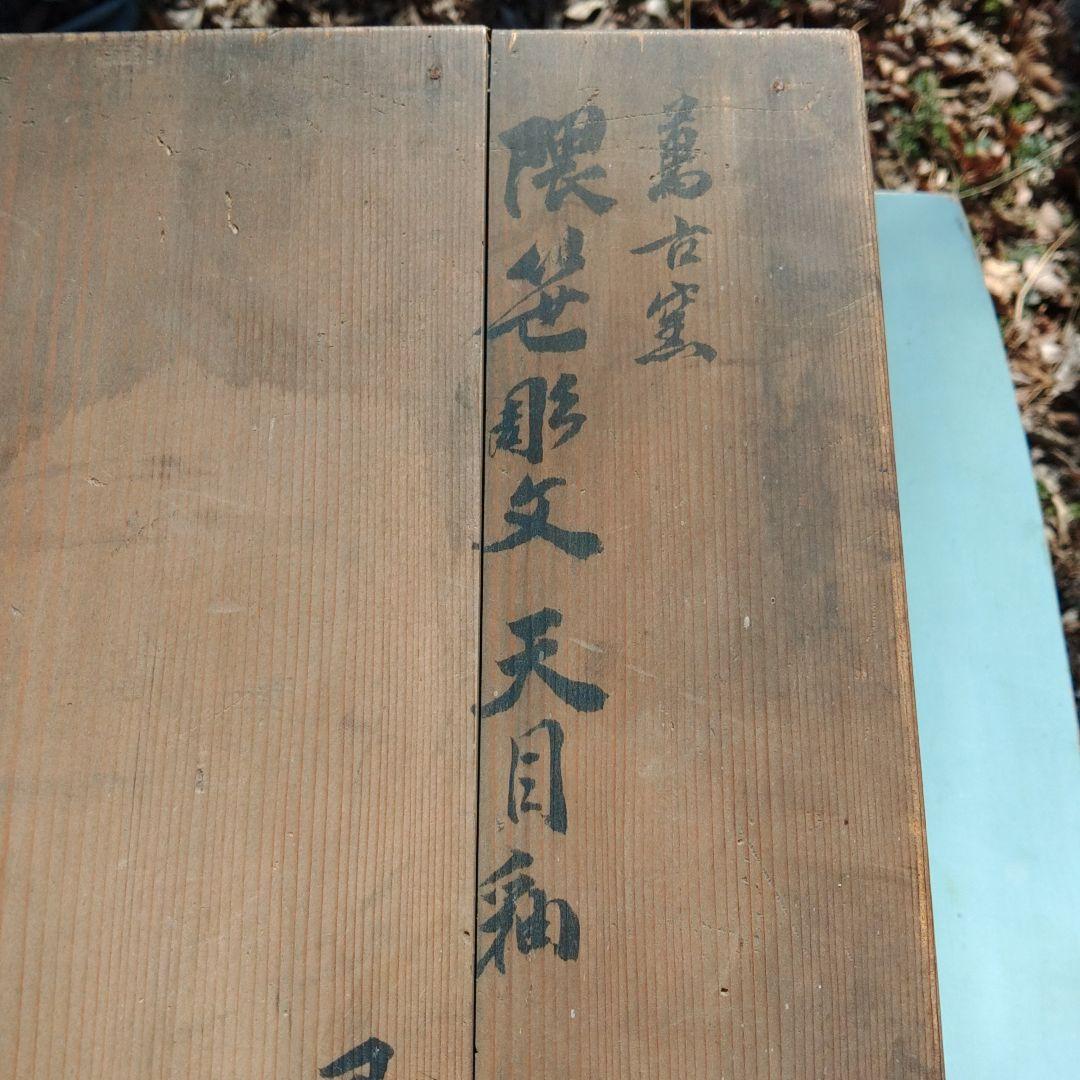 萬古窯
隈笹彫文 天目釉